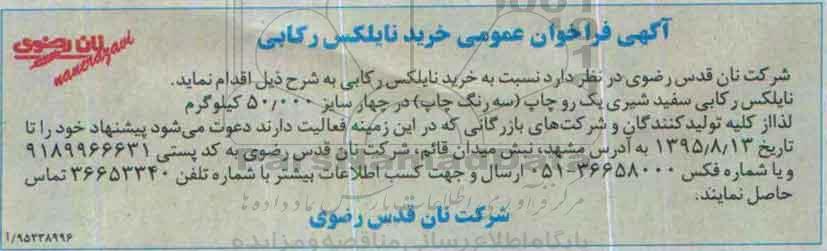 آگهی فراخوان عمومی خرید نایلکس رکابی
نان رضوی
nanerazavi
شرکت نان قدس رضوی در نظر دارد نسبت به خرید نایلکس رکابی به شرح ذیل اقدام نماید.
نایلکس رکابی سفید شیری یک رو چاپ (سه رنگ چاپ) در چهار سایز ۵۰/۰۰۰ کیلوگرم
لذا از کلیه تولیدکنندگان و شرکت‌های بازرگانی که در این زمینه فعالیت دارند دعوت می‌شود پیشنهاد خود را تا
تاریخ ۱۳۹۵/۸/۱۳ به آدرس مشهد، نبش میدان قائم، شرکت نان قدس رضوی به کد پستی ۹۱۸۹۹۶۶۶۳۱
و یا شماره فکس ۳۶۶۵۸۰۰۰-۰۵۱ ارسال و جهت کسب اطلاعات بیشتر با شماره تلفن ۳۶۶۵۳۳۴۰ تماس
حاصل نمایند.
شرکت نان قدس رضوی
۹۵۲۳۸۹۹۶/آ
ParsNamadData
مرکز فرآوری اطلاعات پارس نماد داده ها
پایگاه اطلاع رسانی مناقصه و مزایده